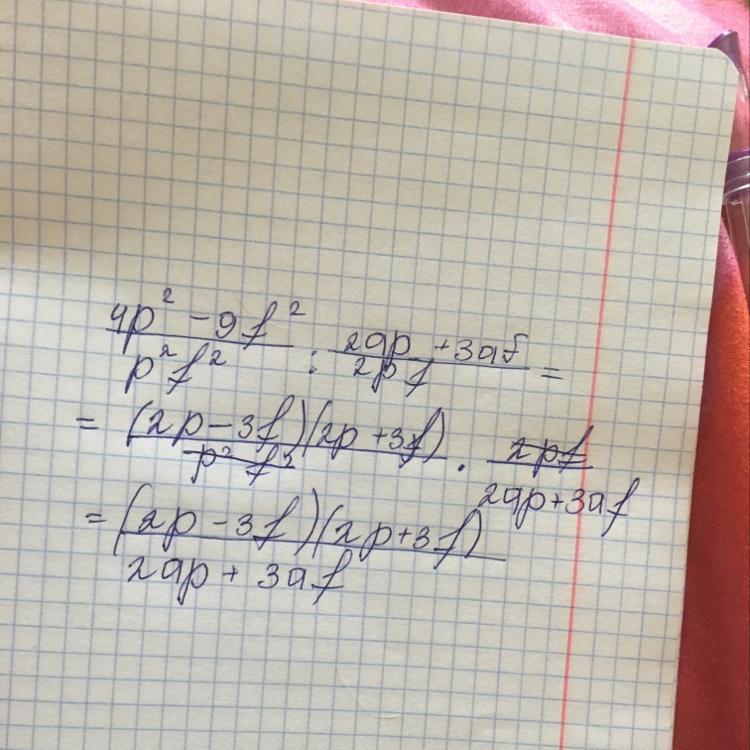 4p² - 9f² / p²f² : 2ap + 3af / 2pf =
= (2p - 3f)(2p + 3f) / p²f² · 2pf / 2ap + 3af
= (2p - 3f)(2p + 3f) / 2ap + 3af